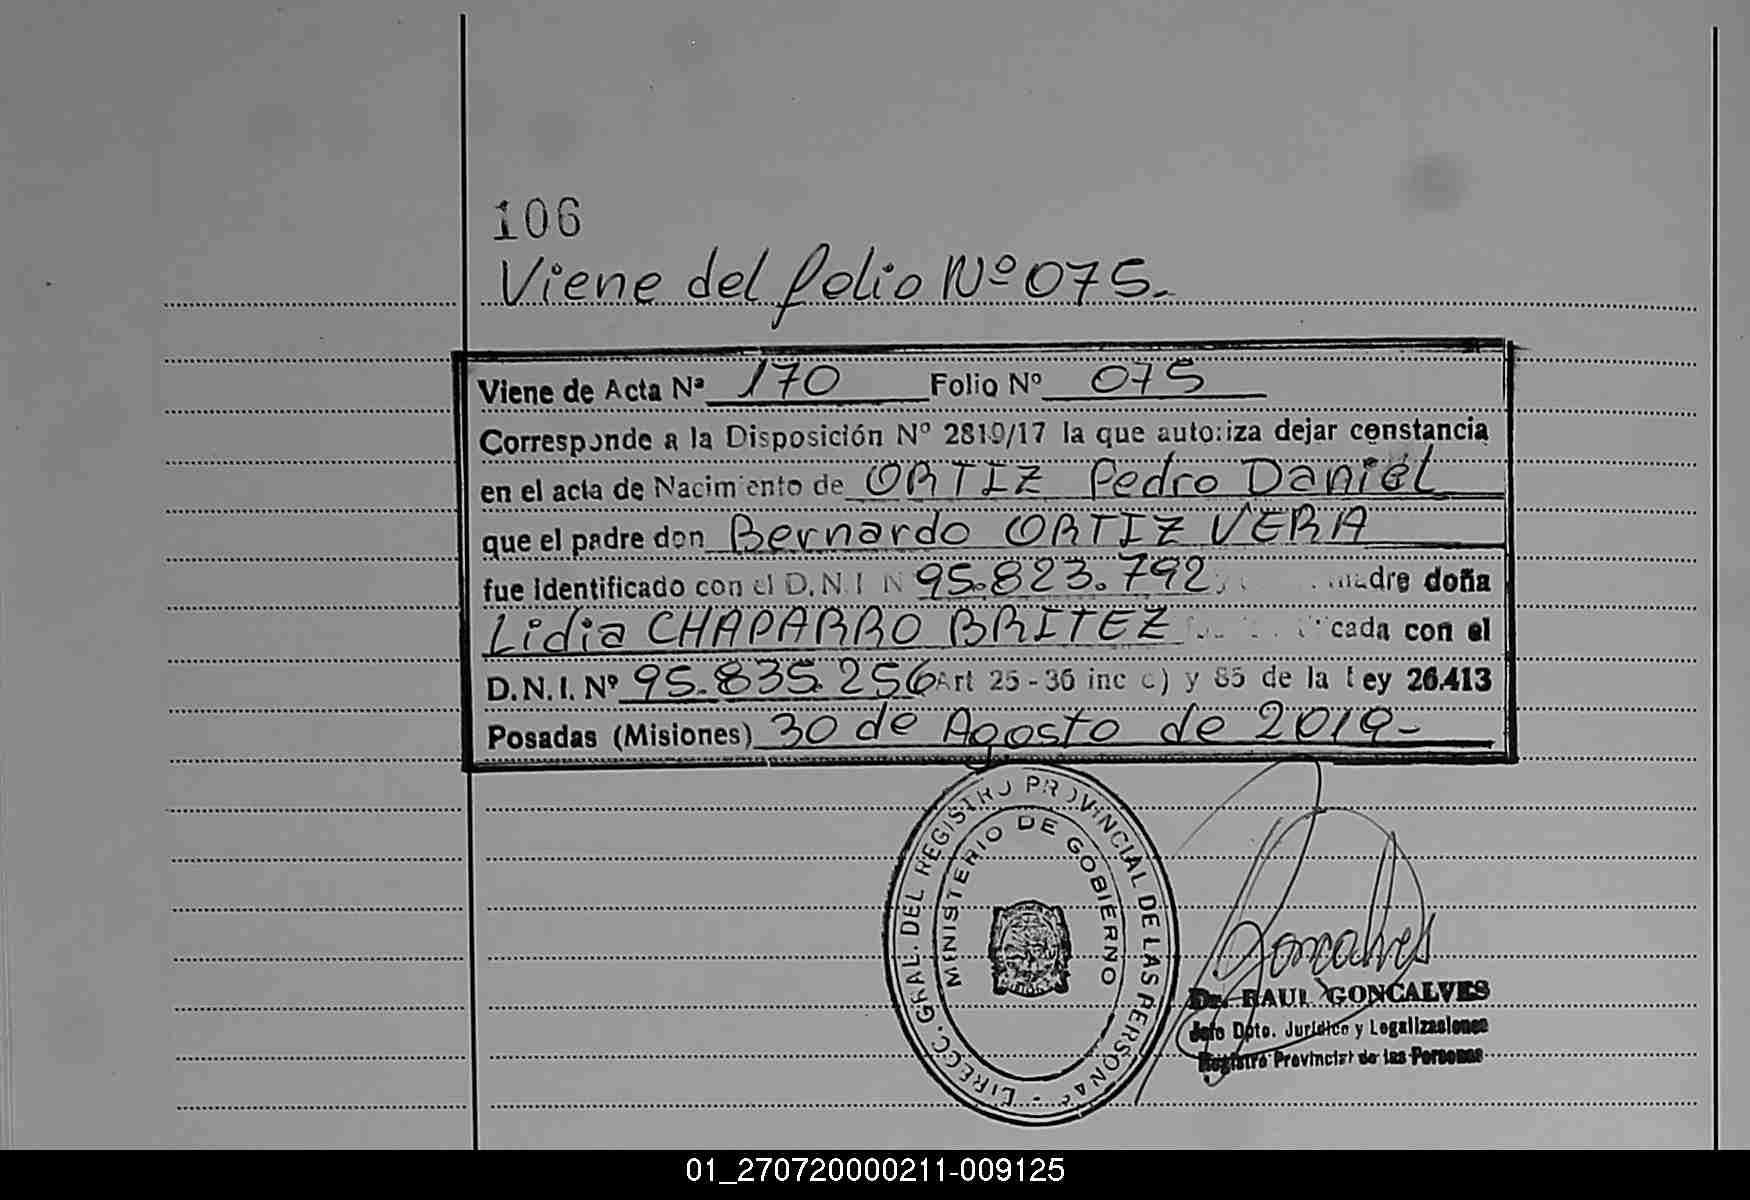 106
Viene del folio Nº 075.-
Viene de Acta Nª 170 Folio Nº 075
Corresponde a la Disposición Nº 2819/17 la que autoriza dejar constancia
en el acta de Nacimiento de ORTIZ Pedro Daniel
que el padre don Bernardo ORTIZ VERA
fue identificado con el D.N.I N 95.823.792, madre doña
Lidia CHAPARRO BRITEZ cada con el
D.N.I. Nº 95.835.256 Art 25-36 inc c) y 85 de la Ley 26.413
Posadas (Misiones) 30 de Agosto de 2019-
DIRECC. GRAL. DEL REGISTRO PROVINCIAL DE LAS PERSONAS -
MINISTERIO DE GOBIERNO
Goncalves
Dr. RAUL GONCALVES
Jefe Dpto. Jurídico y Legalizaciones
Registro Provincial de las Personas
01_270720000211-009125